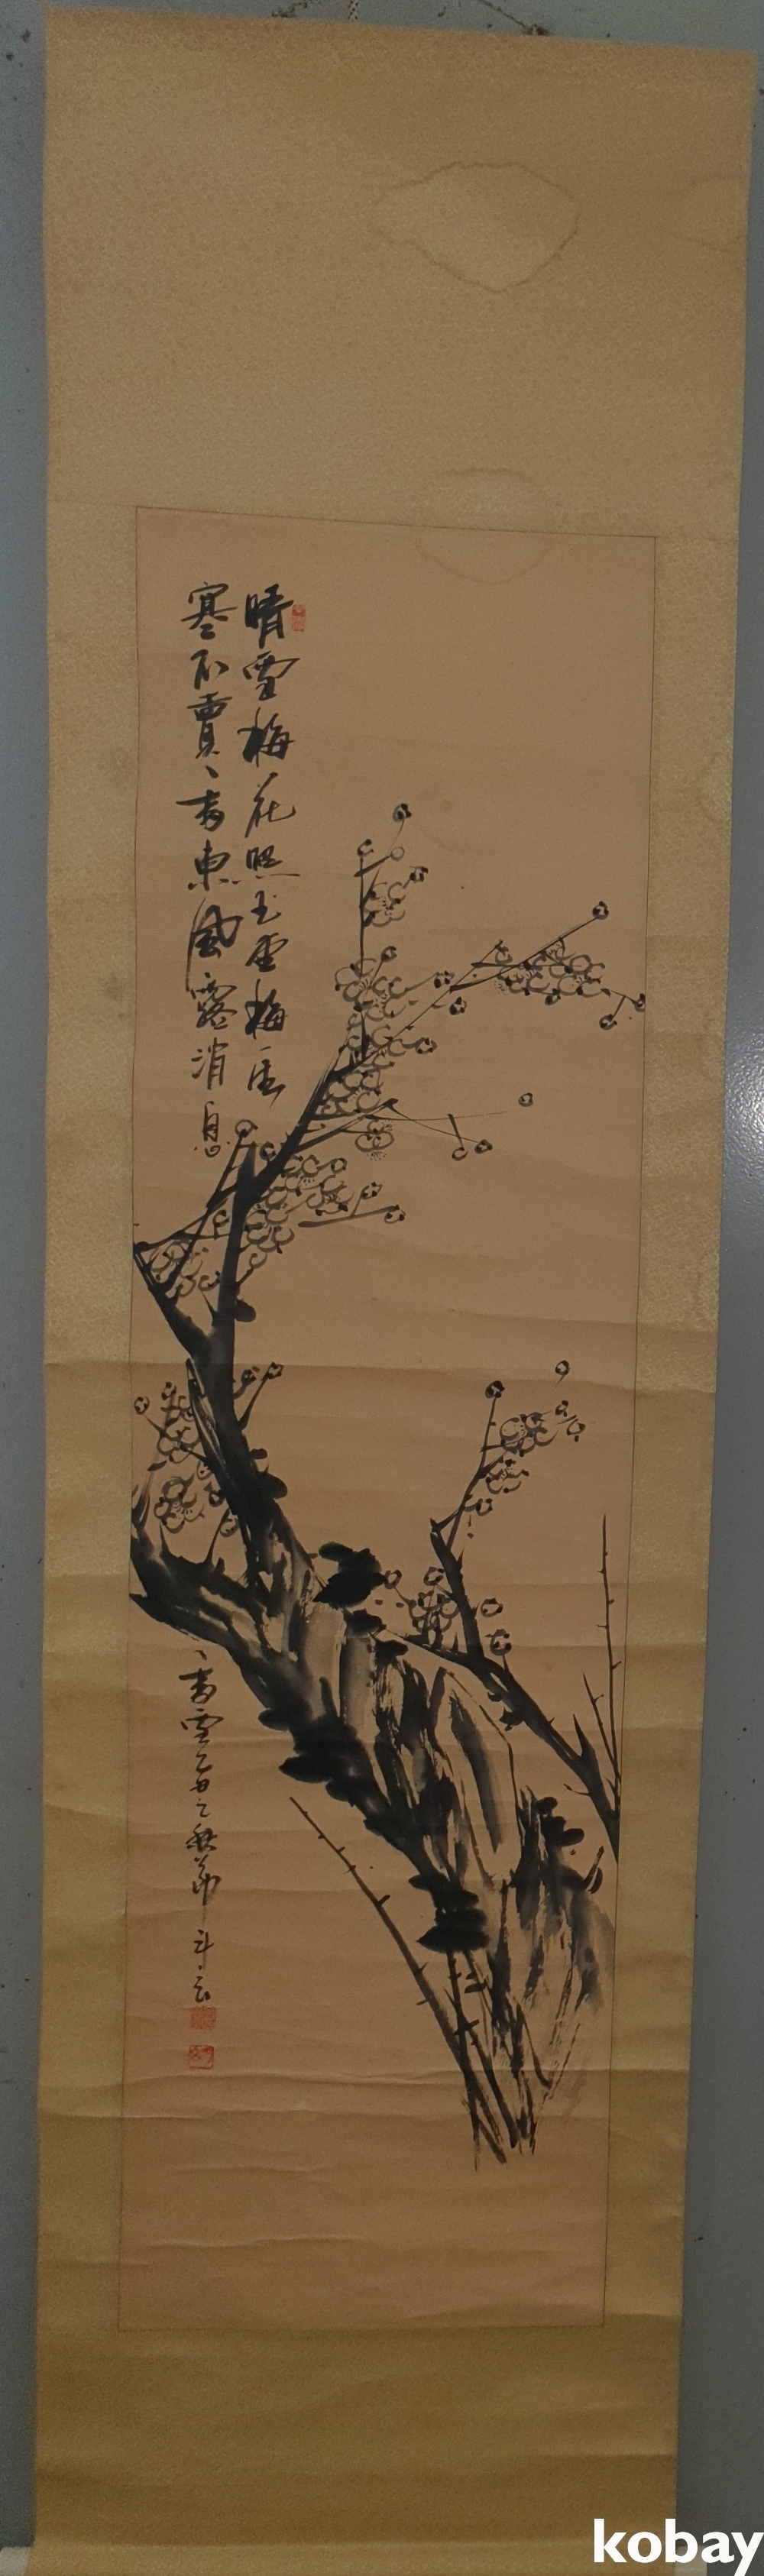 晴雪梅花照玉堂梅言
寒不賣香東風露消息
香雪乙丑之秋節 斗云
kobay